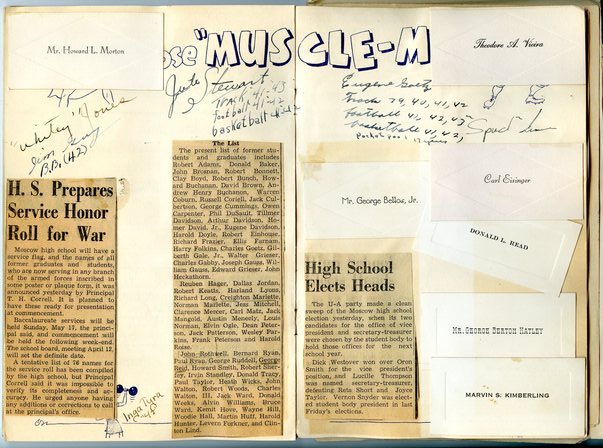 Mr. Howard L. Morton
ose "MUSCLE-M
Theodore A. Vieira
Jude Stewart
Track 41-43
football 41-42
basketball
"Whitey"
B.B. (42)
Eugene Goetz
Track 39, 40, 41, 42
Football 41, 42, 43
Basketball 41, 42,
Pocket pool
H. S. Prepares
Service Honor
Roll for War
Moscow high school will have a
service flag, and the names of all
former graduates and students,
who are now serving in any branch
of the armed forces inscribed in
some poster or plaque form, it was
announced yesterday by Principal
T. H. Correll. It is planned to
have these ready for presentation
at commencement.
Baccalaureate services will be
held Sunday, May 17, the princi-
pal said, and commencement will
be held the following week-end.
The school board, meeting April 12,
will set the definite date.
A tentative list of 76 names for
the service roll has been compiled
by the high school, but Principal
Correll said it was impossible to
verify its completeness and ac-
curacy. He urged anyone having
any additions or corrections to call
at the principal's office.
The List
The present list of former stu-
dents and graduates includes
Robert Adams, Donald Baker,
John Brosnan, Robert Bonnett,
Clay Boyd, Robert Bunch, How-
ard Buchanan, David Brown, An-
drew Henry Buchanan, Warren
Coburn, Russell Coriell, Jack Cul-
bertson, George Cummings, Owen
Carpenter, Phil DuSault, Tillmer
Davidson, Arthur Davidson, Ho-
mer David, Jr., Eugene Davidson,
Harold Doyle, Robert Einhouse,
Richard Frazier, Ellis Farnam,
Harry Folkins, Charles Goetz, Gil-
berth Gale, Jr., Walter Grieser,
Charles Gabby, Joseph Gauss, Wil-
liam Gauss, Edward Grieser, John
Heckathorn.
Reuben Hager, Dallas Jordan,
Robert Keatts, Harland Lyons,
Richard Long, Creighton Marlette,
Norman Marlette, Jess Mitchell,
Clarence Mercer, Carl Matz, Jack
Mangold, Austin Meneely, Louis
Norman, Elvin Ogle, Dean Peter-
son, Jack Patterson, Wesley Par-
kins, Frank Peterson and Harold
Roise.
John Rothwell, Bernard Ryan,
Paul Ryan, George Ruddell, George
Reid, Howard Smith, Robert Sher-
fey, Irvin Standley, Donald Tracy,
Paul Taylor, Heath Wicks, John
Walton, Robert Woods, Charles
Walton, III, Jack Ward, Donald
Weeks, Alvin Williams, Bruce
Ward, Kemit Hove, Wayne Hill,
Woodie Hall, Martin Huff, Harold
Hunter, Levern Forkner, and Clin-
ton Lind.
Inga Tyra
Mr. George Bellos, Jr.
High School
Elects Heads
The U-A party made a clean
sweep of the Moscow high school
election yesterday, when its two
candidates for the office of vice
president and secretary-treasurer
were chosen by the student body to
hold those offices for the next
school year.
Dick Westover won over Oron
Smith for the vice president's
position, and Lucille Thompson
was named secretary-treasurer,
defeating Reta Short and Joyce
Taylor. Vernon Snyder was elect-
ed student body president in last
Friday's elections.
Carl Eisinger
DONALD L. READ
MR. GEORGE BENTON HATLEY
MARVIN S. KIMBERLING